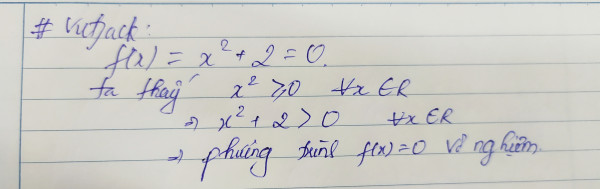 # VuBack:
f(x) = x² + 2 = 0.
ta thấy x² ≥ 0 ∀x ∈ R
⇒ x² + 2 > 0 ∀x ∈ R
⇒ phương trình f(x) = 0 vô nghiệm